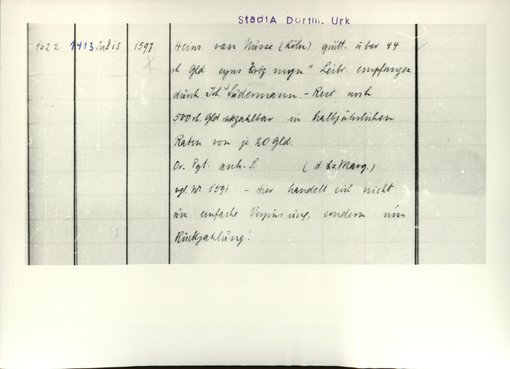 StadtA Dortm. Urk
1622 1413 Juli 13 1597.
Heinr. van Nüsse (Köln) quitt. über 44
rh Gld Leibr. empfangen
durch Joh. Südermann. - Rest noch
500 rh. Gld rückzahlbar in halbjährlichen
Raten von je 20 Gld.
Or. Pgt. anh. S. (d. Marg.)
vgl. Nr. 1591. - Hier handelt sich nicht
um einfache Verzinsung, sondern um
Rückzahlung!